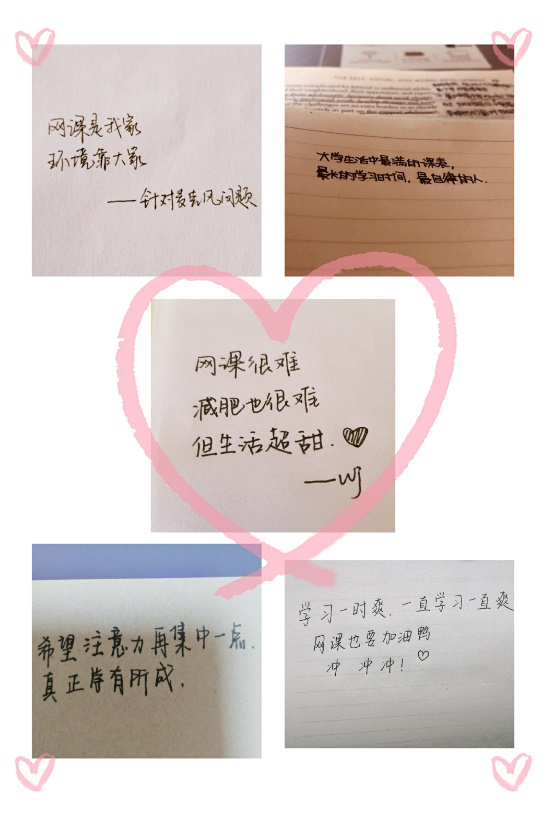 网课是我家
环境靠大家
——针对麦克风问题
大学生活中最满的课表,
最长的学习时间,最自律的人.
网课很难
减肥也很难
但生活超甜.
——wj
希望注意力再集中一点.
真正学有所成.
学习一时爽.一直学习一直爽
网课也要加油鸭
冲 冲 冲!